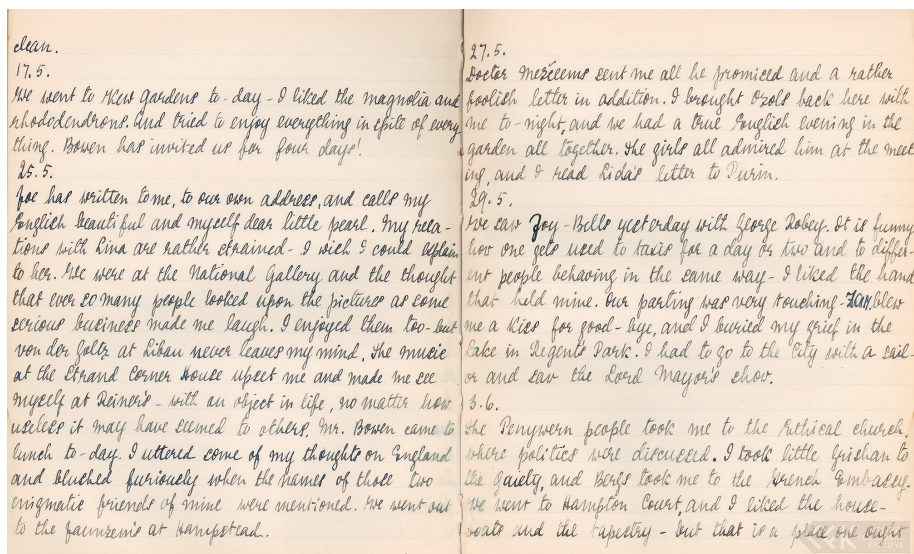 clean.
17.5.
We went to Kew Gardens to-day - I liked the magnolia and
rhododendrons. And tried to enjoy everything in spite of every
thing. Bowen has invited us for four days!
25.5.
Joe has written to me, to our own address, and calls my
English beautiful and myself dear little pearl. My rela-
tions with Lina are rather strained - I wish I could explain
to her. We were at the National Gallery and the thought
that ever so many people looked upon the pictures as some
serious business made me laugh. I enjoyed them too - but
von der Goltz at Libau never leaves my mind. The music
at the Strand Corner House upset me and made me see
myself at Reiner's - with an object in life, no matter how
useless it may have seemed to others. Mr. Bowen came to
lunch to-day. I uttered some of my thoughts on England
and blushed furiously when the names of those two
enigmatic friends of mine were mentioned. We went out
to the at Hampstead.
27.5.
Doctor sent me all he promised and a rather
foolish letter in addition. I brought Ozols back here with
me to-night, and we had a true English evening in the
garden all together. The girls all admired him at the meet
ing, and I read Lida's letter to Purin.
29.5.
We saw Joy-Bells yesterday with George Robey. It is funny
how one gets used to taxis for a day or two and to differ-
ent people behaving in the same way - I liked the hand
that held mine. Our parting was very touching - blew
me a kiss for good-bye, and I buried my grief in the
Lake in Regent's Park. I had to go to the City with a sail-
or and saw the Lord Mayor's show.
3.6.
The Penywern people took me to the Ethical church,
where politics were discussed. I took little Grishan to
the Gaiety, and Bergs took me to the French Embassy.
We went to Hampton Court, and I liked the house-
boats and the tapestry - but that is a place one ought